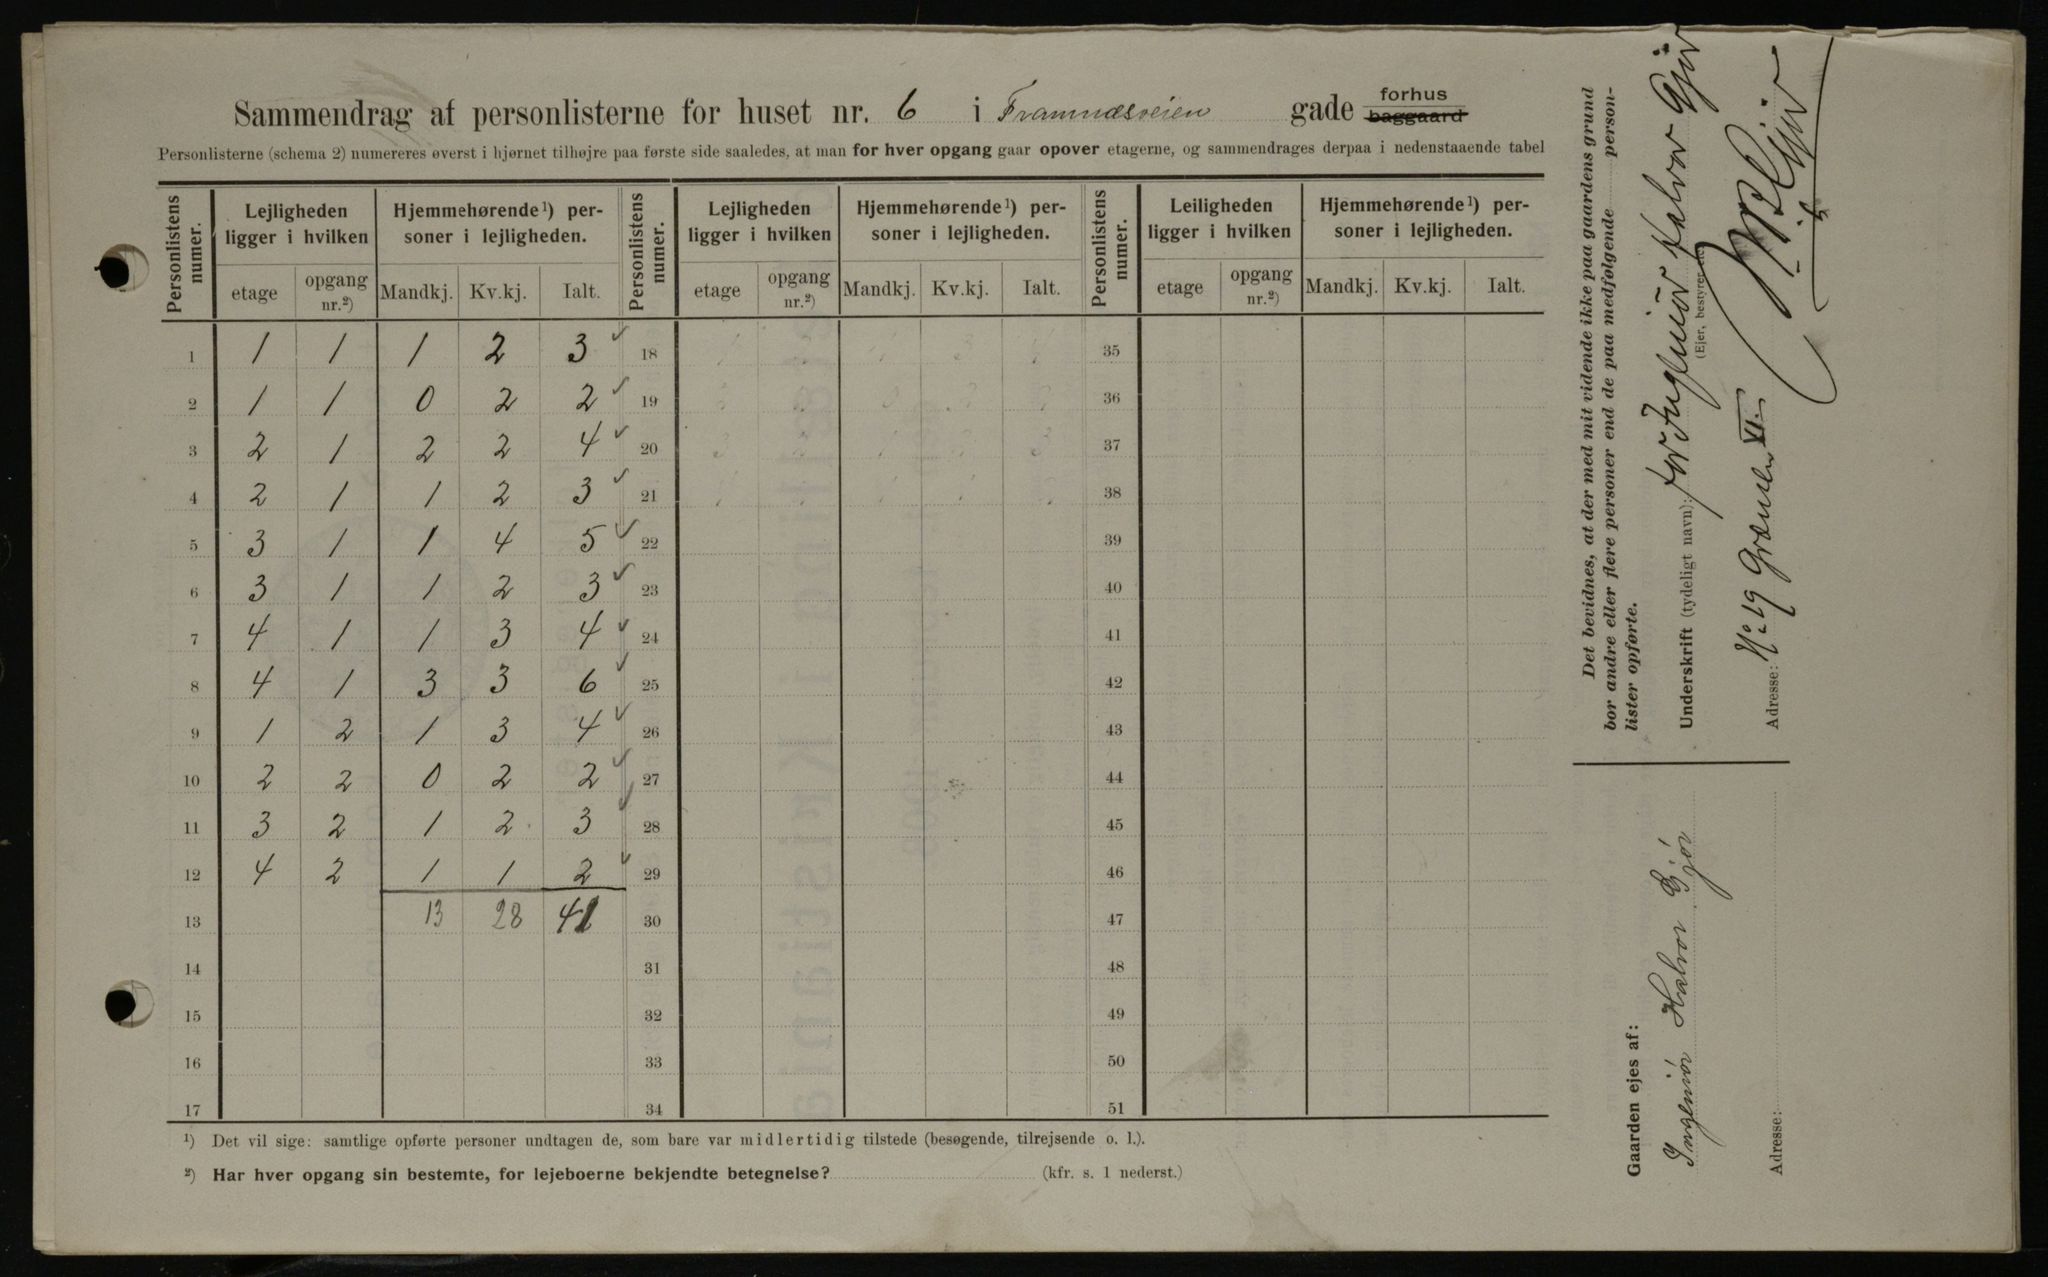 Sammendrag af personlisterne for huset nr. 6 i Framnæsveien gade forhus baggaard
Personlisterne (schema 2) numereres øverst i hjørnet tilhøjre paa første side saaledes, at man for hver opgang gaar opover etagerne, og sammendrages derpaa i nedenstaaende tabel
Personlistens numer. Lejligheden ligger i hvilken Hjemmehørende ¹) personer i lejligheden. Personlistens numer. Lejligheden ligger i hvilken Hjemmehørende ¹) personer i lejligheden. Personlistens numer. Leiligheden ligger i hvilken Hjemmehørende ¹) personer i lejligheden.
etage opgang nr.²) Mandkj. Kv.kj. Ialt. etage opgang nr.²) Mandkj. Kv.kj. Ialt. etage opgang nr.²) Mandkj. Kv.kj. Ialt.
1 1 1 1 2 3 ✓ 18 35
2 1 1 0 2 2 ✓ 19 36
3 2 1 2 2 4 ✓ 20 37
4 2 1 1 2 3 ✓ 21 38
5 3 1 1 4 5 ✓ 22 39
6 3 1 1 2 3 ✓ 23 40
7 4 1 1 3 4 ✓ 24 41
8 4 1 3 3 6 ✓ 25 42
9 1 2 1 3 4 ✓ 26 43
10 2 2 0 2 2 ✓ 27 44
11 3 2 1 2 3 ✓ 28 45
12 4 2 1 1 2 ✓ 29 46
13 13 28 41 30 47
14 31 48
15 32 49
16 33 50
17 34 51
¹) Det vil sige: samtlige opførte personer undtagen de, som bare var midlertidig tilstede (besøgende, tilrejsende o. l.).
²) Har hver opgang sin bestemte, for lejeboerne bekjendte betegnelse? (kfr. s. 1 nederst.)
Det bevidnes, at der med mit vidende ikke paa gaardens grund
bor andre eller flere personer end de paa medfølgende person-
lister opførte.
Underskrift (tydeligt navn): for Ingeniör Halvor Gjör
(Ejer, bestyrer
Adresse: No 19 Grænsen VI.
Gaarden ejes af:
Ingeniör Halvor Gjör
Adresse: